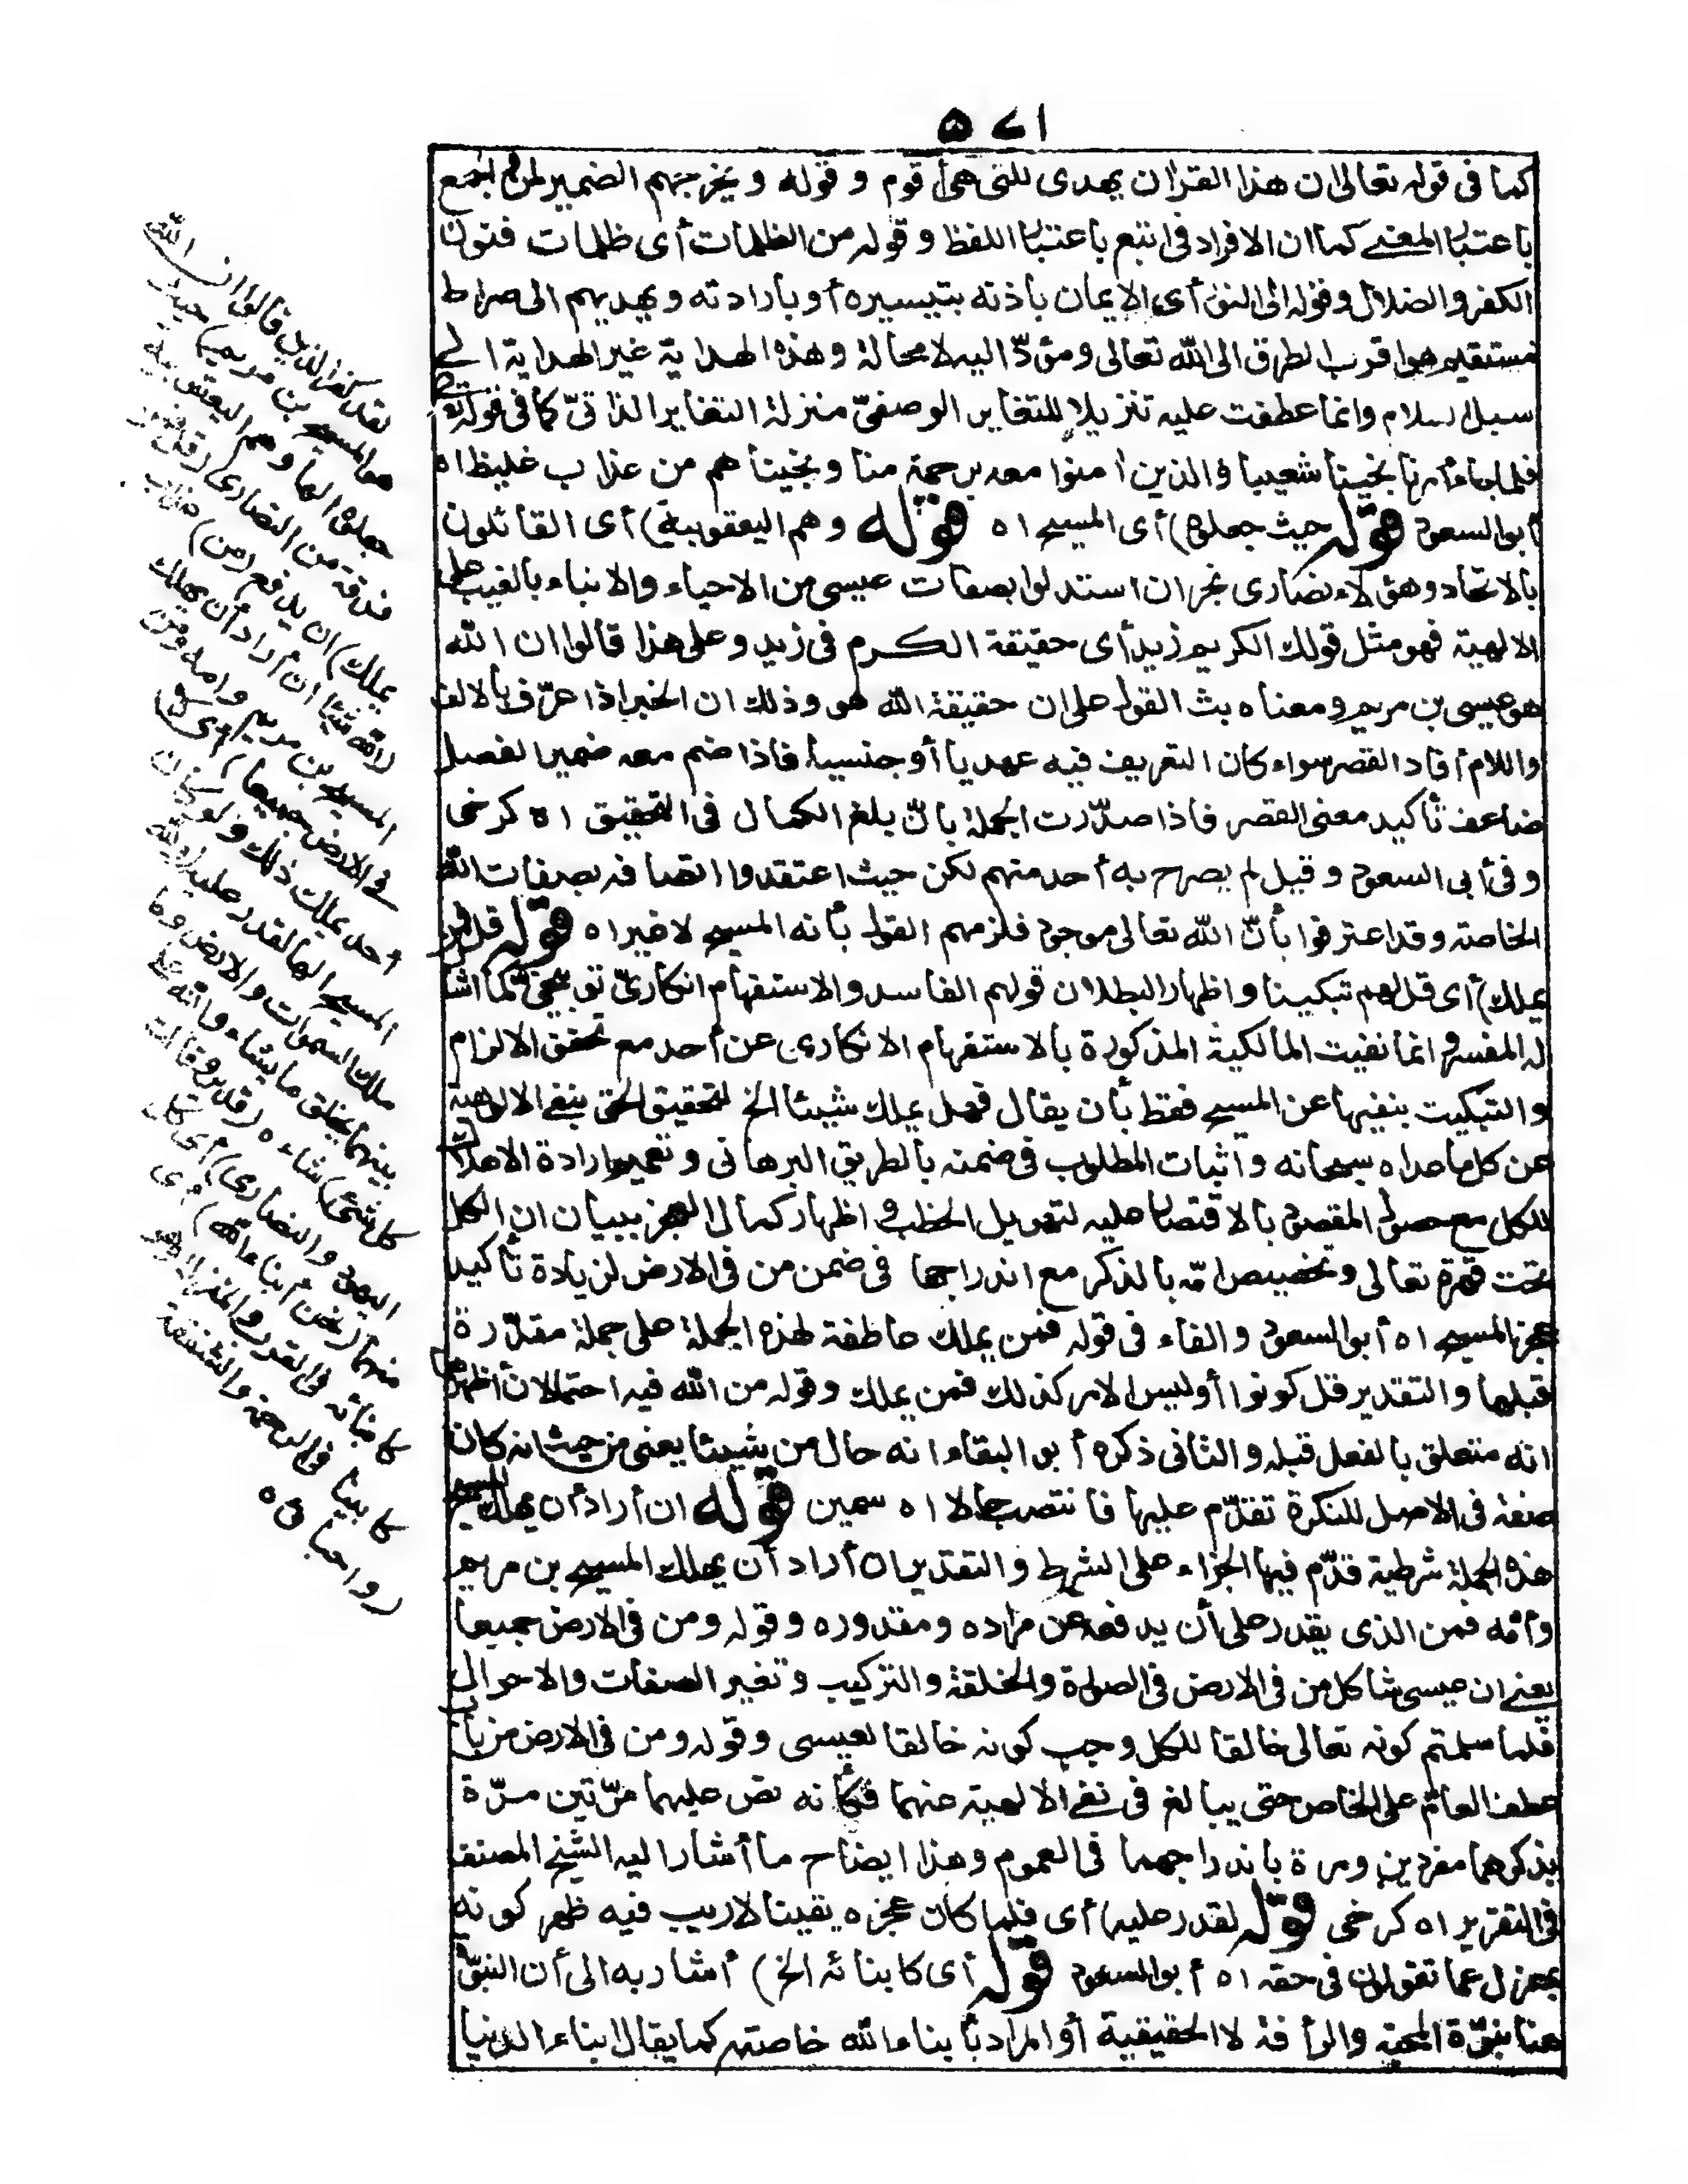 ٥٧١
كما فى قوله تعالى ان هذا القران يهدى للتى هى أقوم و قوله و يخرجهم الضمير لمن و الجمع
باعتبار المعنى كما ان الافراد فى اتبع باعتبار اللفظ و قوله من الظلمات أى ظلمات فنون
الكفر و الضلال و قوله الى النور أى الايمان باذنه بتيسيره أو بارادته و يهديهم الى صراط
مستقيم هو اقرب الطرق الى الله تعالى و مؤدّ اليه لا محالة و هذه الهداية غير الهداية الى
سبل السلام و انما عطفت عليه تنزيلا للتغاير الوصفىّ منزلة التغاير الذاتىّ كما فى قوله تعالى
فلما جاء أمرنا نجينا شعيبا و الذين اٰمنوا معه برحمة منا و نجيناهم من عذاب غليظ اه
أبو السعود قوله حيث جعلوه) أى المسيح اه قوله و هم اليعقوبية) أى القائلون
بالاتحاد و هؤلاء نصارى نجران استدلوا بصفات عيسى من الاحياء و الانباء بالغيب على
الالهية فهو مثل قولك الكريم زيد أى حقيقة الكرم فى زيد و على هذا قالوا ان الله
هو عيسى بن مريم و معناه بث القول على ان حقيقة الله هو و ذلك ان الخبر اذا عرّف بالالف
و اللام أفاد القصر سواء كان التعريف فيه عهديا أو جنسيا فاذا ضم معه ضمير الفصل
ضاعف تأكيد معنى القصر فاذا صدّرت الجملة بانّ بلغ الكمال فى التحقيق اه كرخى
و فى أبى السعود و قيل لم يصرح به أحد منهم لكن حيث اعتقدوا اتصافه بصفات الله
الخاصة و قد اعترفوا بأنّ الله تعالى موجود فلزمهم القول بأنه المسيح لا غير اه قوله قل فمن
يملك) أى قل لهم تبكيتا و اظهارا لبطلان قولهم الفاسد و الاستفهام انكارىّ توبيخىّ كما اشار
له المفسر و انما نفيت المالكية المذكورة بالاستفهام الانكارى عن أحد مع تحقق الالزام
و التبكيت بنفيها عن المسيح فقط بأن يقال فهل يملك شيئا الخ لتحقيق الحق بنفى الالوهية
عن كل ما عداه سبحانه و اثبات المطلوب فى ضمنه بالطريق البرهانى و تعميم ارادة الاهلاك
للكل مع حصول المقصود بالاقتصار عليه لتهويل الخطب و اظهار كمال العجز ببيان ان الكل
تحت قهره تعالى و تخصيص امّه بالذكر مع اندراجها فى ضمن من فى الارض لزيادة تأكيد
عجز المسيح اه أبو السعود و الفاء فى قوله فمن يملك عاطفة لهذه الجملة على جملة مقدّرة
قبلها و التقدير قل كونوا أو ليس الامر كذلك فمن يملك و قوله من الله فيه احتمالان أظهرهما
انه متعلق بالفعل قبله و الثانى ذكره أبو البقاء انه حال من شيئا يعنى من حيث انه كان
صفة فى الاصل للنكرة تقدّم عليها فانتصب حالا اه سمين قوله ان أراد أن يهلك المسيح
هذه الجملة شرطية قدّم فيها الجزاء على الشرط و التقدير ان أراد أن يهلك المسيح بن مريم
و أمّه فمن الذى يقدر على أن يدفعه عن مراده و مقدوره و قوله و من فى الارض جميعا
يعنى ان عيسى شاكل من فى الارض فى الصورة و الخلقة و التركيب و تغير الصفات و الاحوال
فلما سلمتم كونه تعالى خالقا للكل وجب كونه خالقا لعيسى و قوله و من فى الارض من باب
عطف العامّ على الخاص حتى يبالغ فى نفى الالهية عنهما فكأنه نص عليهما مرّتين مرّة
بذكرهما مفردين و مرة باندراجهما فى العموم و هذا ايضاح ما أشار اليه الشيخ المصنف
فى التقرير اه كرخى قوله لقدر عليه) أى فلما كان عجزه يقينا لا ريب فيه ظهر كونه
بمعزل عما تقولون فى حقه اه أبو السعود قوله أى كابنائه الخ) أشار به الى أن النبوّة
هنا بنوّة المحبة و الرأفة لا الحقيقية أو المراد بأبناء الله خاصته كما يقال ابناء الدنيا
لقد كفر الذين قالوا ان الله
هو المسيح بن مريم) حيث
جعلوه الها و هم اليعقوبية
فرقة من النصارى (قل فمن
يملك) ان يدفع (من) عذاب
(الله شيئا ان أراد أن يهلك
المسيح بن مريم و امه و من
فى الارض جميعا) أى لا
أحد يملك ذلك و لو كان
المسيح الها لقدر عليه (و لله
ملك السموات و الارض و ما
بينهما يخلق ما يشاء و الله على
كل شئ) شاءه (قدير و قالت
اليهود و النصارى) أى كل
منهما (نحن أبناء الله) أى
كأبنائه فى القرب و المنزلة و هو
كأبينا فى الرحمة و الشفقة
(و احباؤه